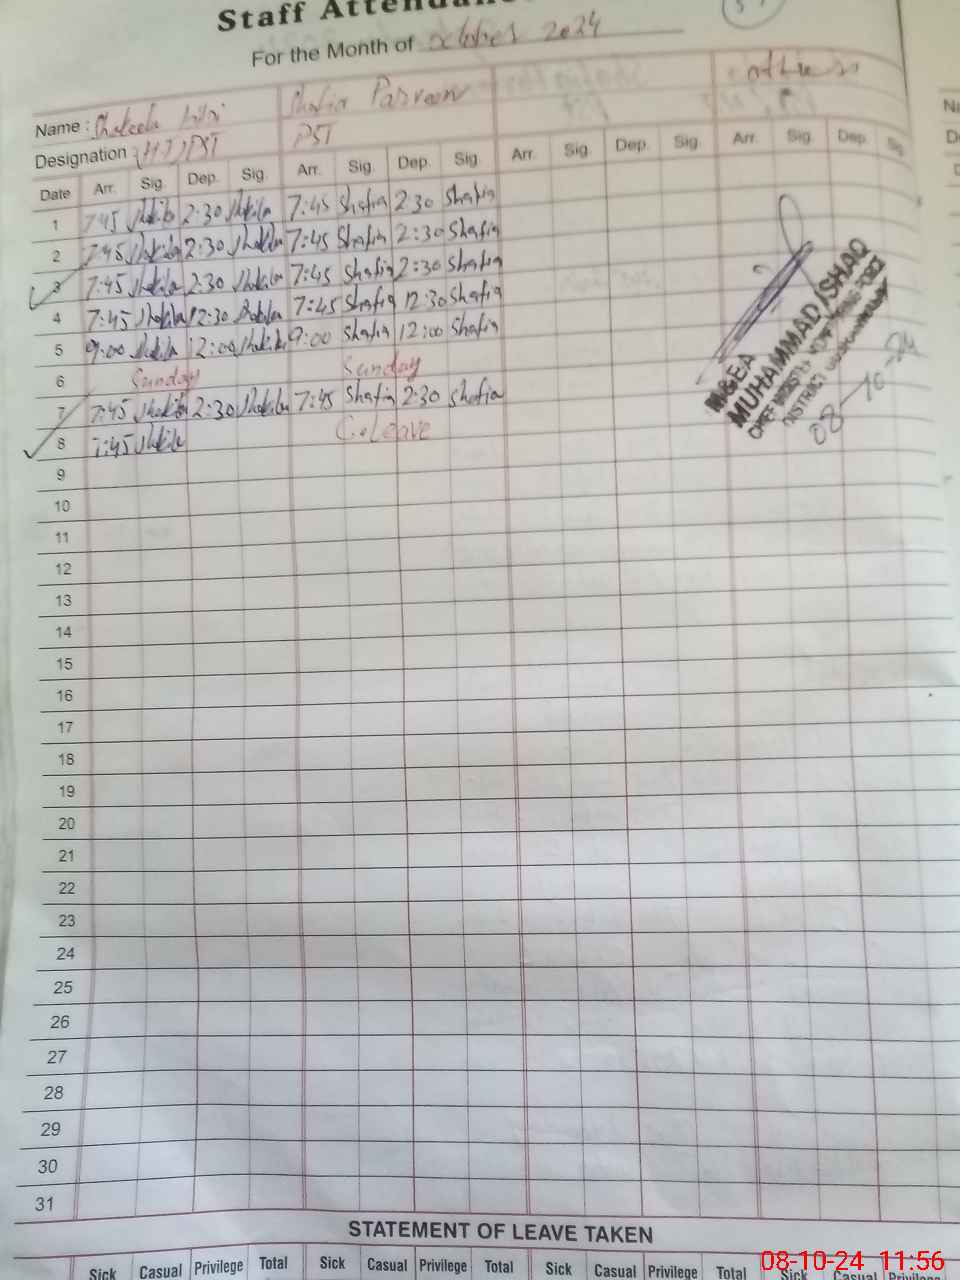 Staff Attendance
For the Month of October 2024
Name : Shakeela Bibi Shafia Parveen others
Designation (HT) PST PST
Date Arr. Sig. Dep. Sig. Arr. Sig. Dep. Sig. Arr. Sig. Dep. Sig. Arr. Sig. Dep. Sig.
1 7:45 Shakila 2:30 Shakila 7:45 Shafia 2:30 Shafia
2 7:45 Shakila 2:30 Shakila 7:45 Shafia 2:30 Shafia
3 7:45 Shakila 2:30 Shakila 7:45 Shafia 2:30 Shafia
4 7:45 Shakila 12:30 Shakila 7:45 Shafia 12:30 Shafia
5 9:00 Shakila 12:00 Shakila 9:00 Shafia 12:00 Shafia
6 Sunday Sunday
7 7:45 Shakila 2:30 Shakila 7:45 Shafia 2:30 Shafia
8 7:45 Shakila C.Leave
M&EA
MUHAMMAD ISHAQ
CHIEF MINISTER'S MONITORING FORCE
DISTRICT
08-10-24
9
10
11
12
13
14
15
16
17
18
19
20
21
22
23
24
25
26
27
28
29
30
31
STATEMENT OF LEAVE TAKEN
Sick Casual Privilege Total Sick Casual Privilege Total Sick Casual Privilege Total Sick Casual Privilege
08-10-24 11:56